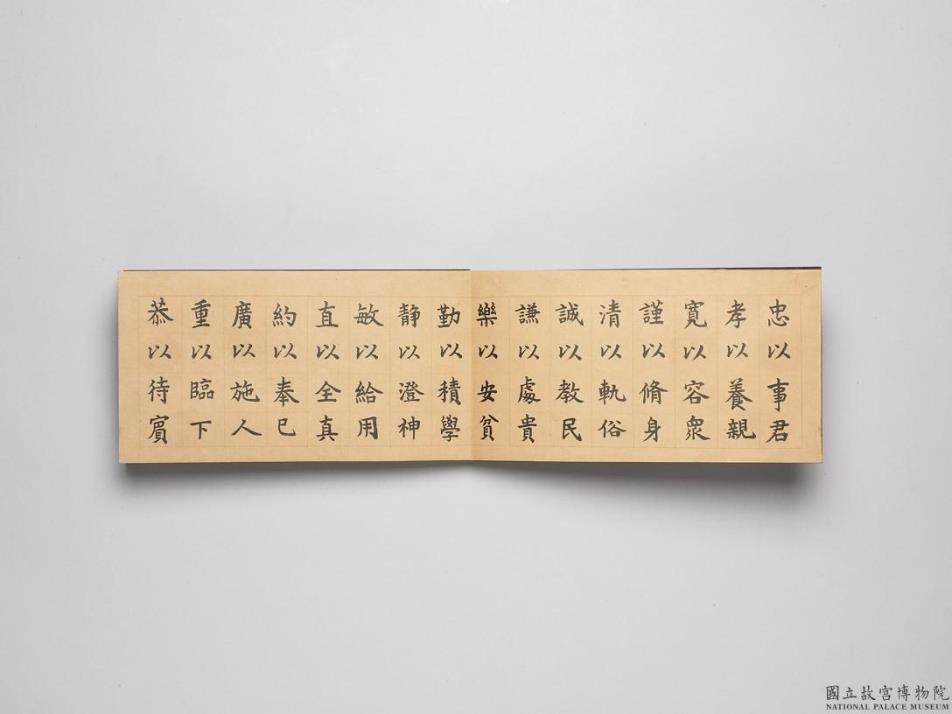 忠以事君
孝以養親
寬以容衆
謹以脩身
清以軌俗
誠以教民
謙以處貴
樂以安貧
勤以積學
静以澄神
敏以給用
直以全真
約以奉己
廣以施人
重以臨下
恭以待賓
國立故宮博物院
NATIONAL PALACE MUSEUM